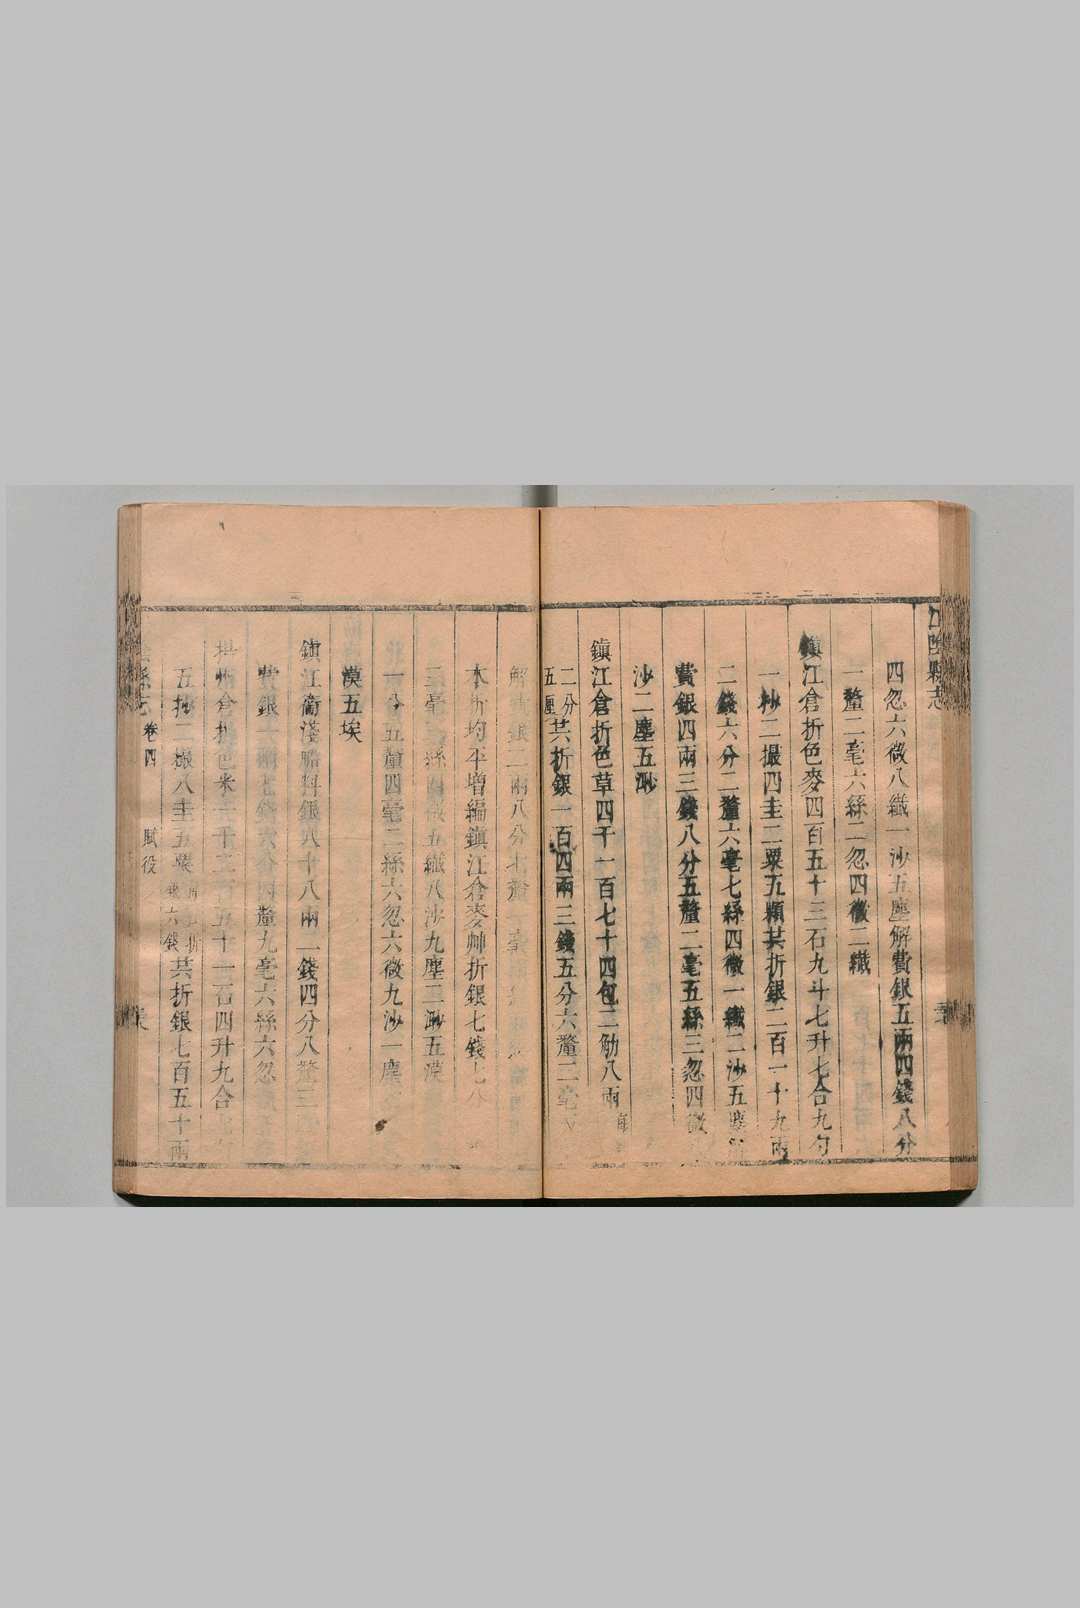 江陰縣志
四忽六微八纖一沙五塵解費銀五兩四錢八分
一釐二毫六絲二忽四微二纖
鎮江倉折色麥四百五十三石九斗七升七合九勺
一秒二撮四圭二粟五顆共折銀二百一十九兩
二錢六分二釐六毫七絲四微一纖二沙五塵
費銀四兩三錢八分五釐二毫五絲三忽四微
沙二塵五渺
鎮江倉折色草四千一百七十四包二觔八兩
二分五厘共折銀一百四兩三錢五分六釐二毫
解 銀二兩八分七釐 毫
本折均平增編鎮江倉麥草折銀七錢七分
三毫 絲 五纖八沙九塵二渺五漠
一分五釐四毫二絲六忽六微九沙一塵
漠五埃
鎮江衛淺船料銀八十八兩一錢四分八釐三
費銀一兩七錢六分 釐九毫六絲六忽
倉 色米 千 百五十一石四升九合
五抄二撮八圭五粟 錢六錢共折銀七百五十兩
縣志 卷四 賦役